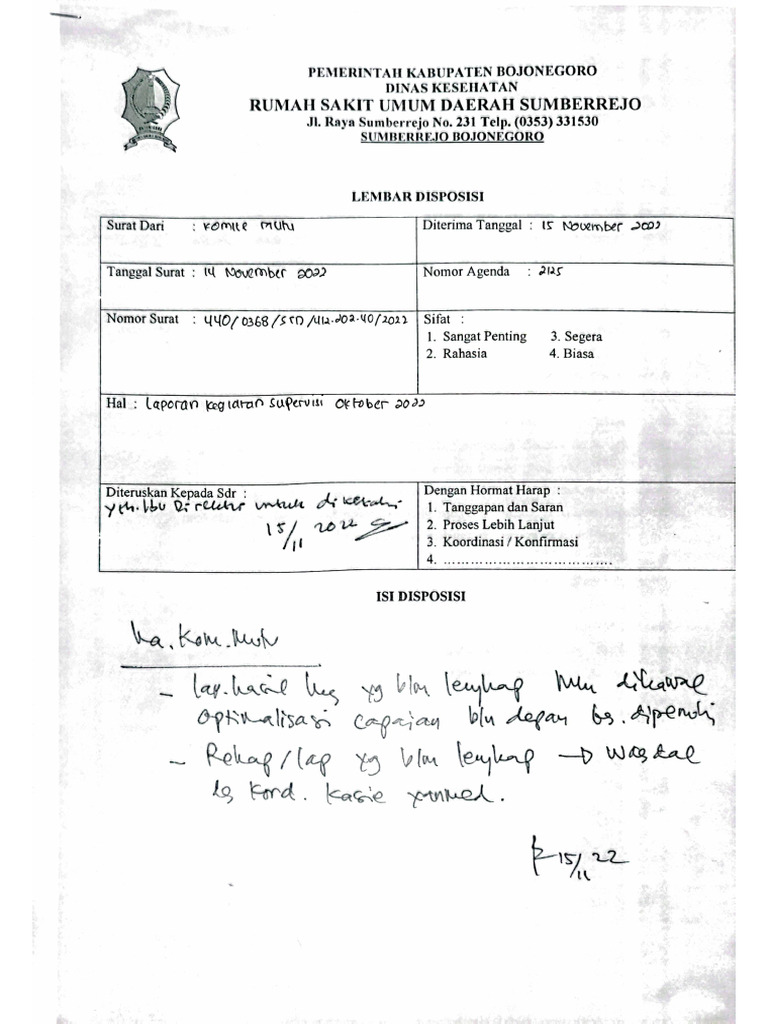 PEMERINTAH KABUPATEN BOJONEGORO
DINAS KESEHATAN
RUMAH SAKIT UMUM DAERAH SUMBERREJO
Jl. Raya Sumberrejo No. 231 Telp. (0353) 331530
SUMBERREJO BOJONEGORO
LEMBAR DISPOSISI
Surat Dari : Komite Mutu
Diterima Tanggal : 15 November 2022
Tanggal Surat : 14 November 2022
Nomor Agenda : 2125
Nomor Surat : 440/0368/STD/412.202.40/2022
Sifat :
1. Sangat Penting 3. Segera
2. Rahasia 4. Biasa
Hal : Laporan kegiatan supervisi Oktober 2022
Diteruskan Kepada Sdr :
yth. Ibu Direktur untuk diketahui
15/11 2022
Dengan Hormat Harap :
1. Tanggapan dan Saran
2. Proses Lebih Lanjut
3. Koordinasi / Konfirmasi
4. ....................................
ISI DISPOSISI
Ka. Kom. Mutu
- Lap. hasil yg blm lengkap dikawal
optimalisasi capaian bln depan bs. dipenuhi
- Rekap/lap yg blm lengkap → wasdal
dg kord. kasie yanmed.
15/11 22